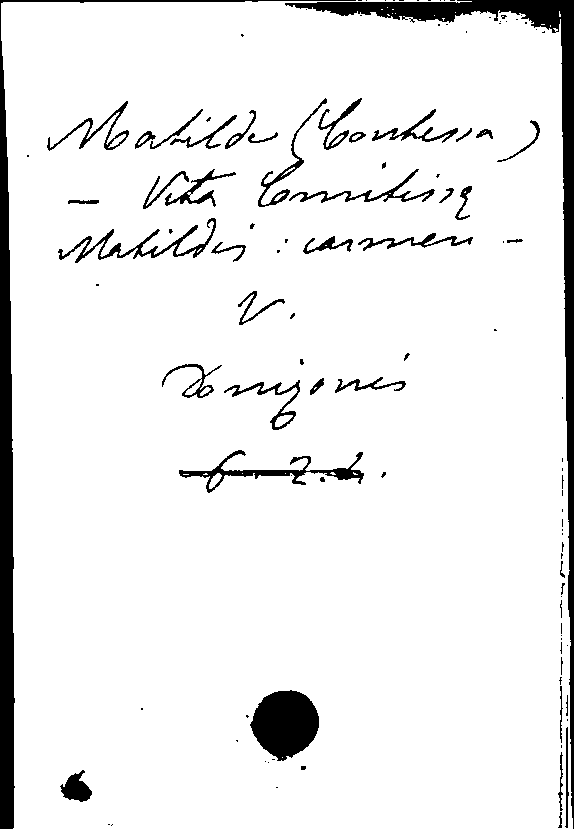 Matilde (Contessa)
— Vita Comitissæ
Matildis : carmen —
V.
Donizonis
6. Z. 4.